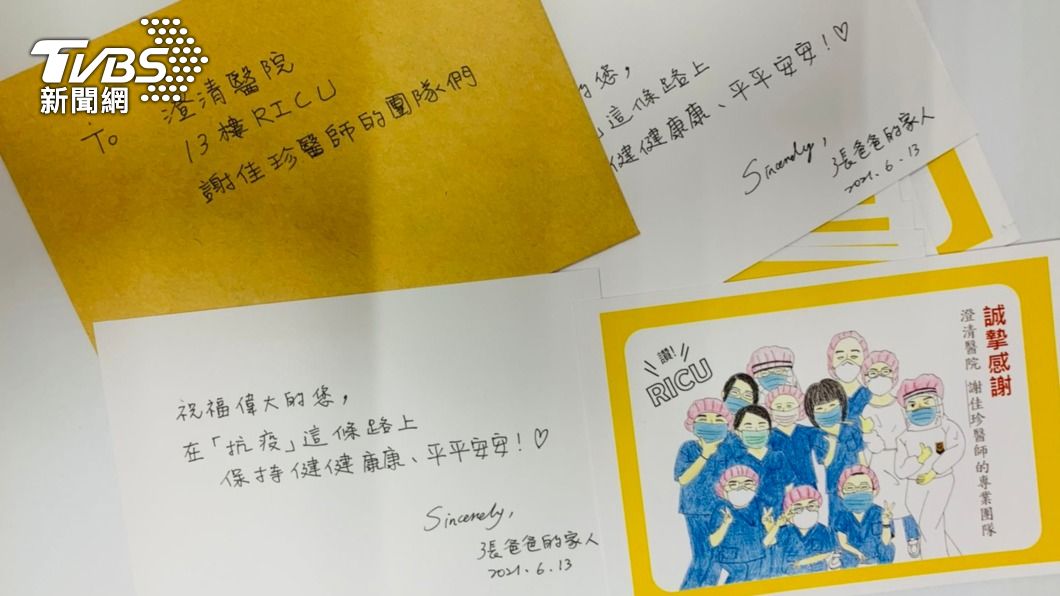 TVBS
新聞網
To 澄清醫院
13樓RICU
謝佳珍醫師的團隊們
的您,
這條路上
健健康康、平平安安!♡
Sincerely,
張爸爸的家人
2021.6.13
祝福偉大的您,
在「抗疫」這條路上
保持健健康康、平平安安!♡
Sincerely,
張爸爸的家人
2021.6.13
讚!
RICU
誠摯感謝
澄清醫院 謝佳珍醫師的專業團隊